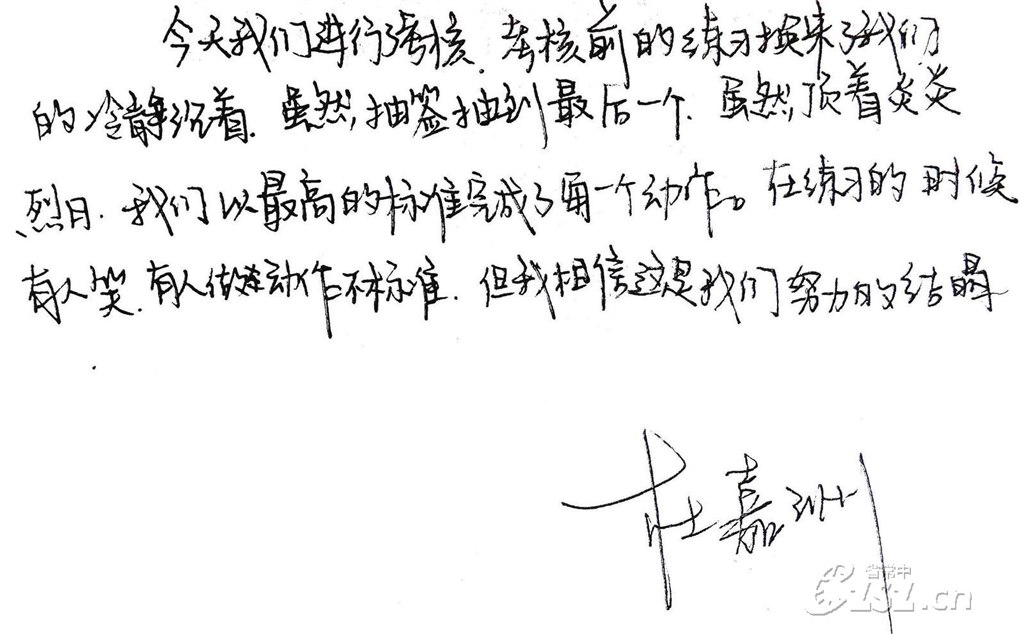 今天我们进行了考核,考核前的练习换来了我们
的冷静沉着.虽然,抽签抽到最后一个.虽然,顶着炎炎
烈日.我们以最高的标准完成了每一个动作。在练习的时候
有人笑.有人做错动作不标准.但我相信这是我们努力的结晶
.
杜嘉洲
省常中
CSLZL.cn